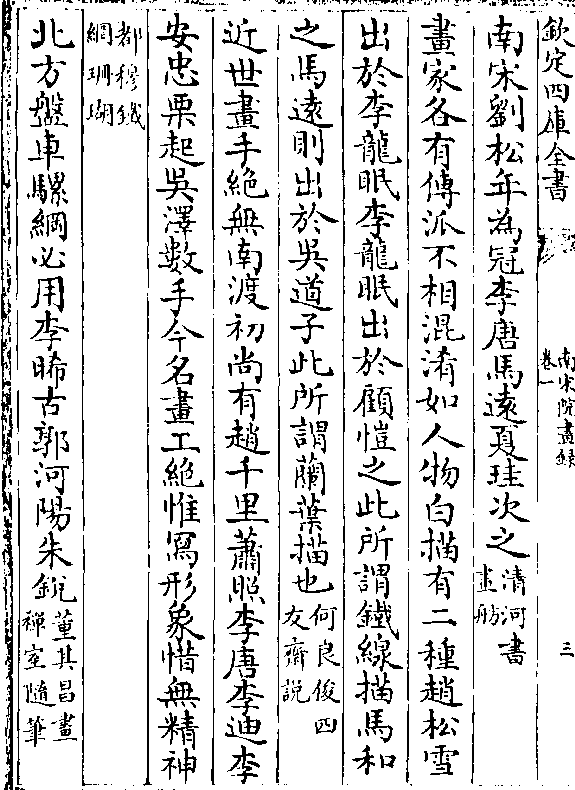 欽定四庫全書
南宋院畫錄
卷一
三
南宋劉松年為冠李唐馬遠夏珪次之清河書
畫舫
畫家各有傳派不相混淆如人物白描有二種趙松雪
出於李龍眠李龍眠出於顧愷之此所謂鐵線描馬和
之馬遠則出於吳道子此所謂蘭葉描也何良俊四
友齋説
近世畫手絶無南渡初尚有趙千里蕭照李唐李迪李
安忠栗起吳澤數手今名畫工絶惟寫形象惜無精神
都穆鐵
網珊瑚
北方盤車騾綱必用李晞古郭河陽朱銳董其昌畫
禪室隨筆